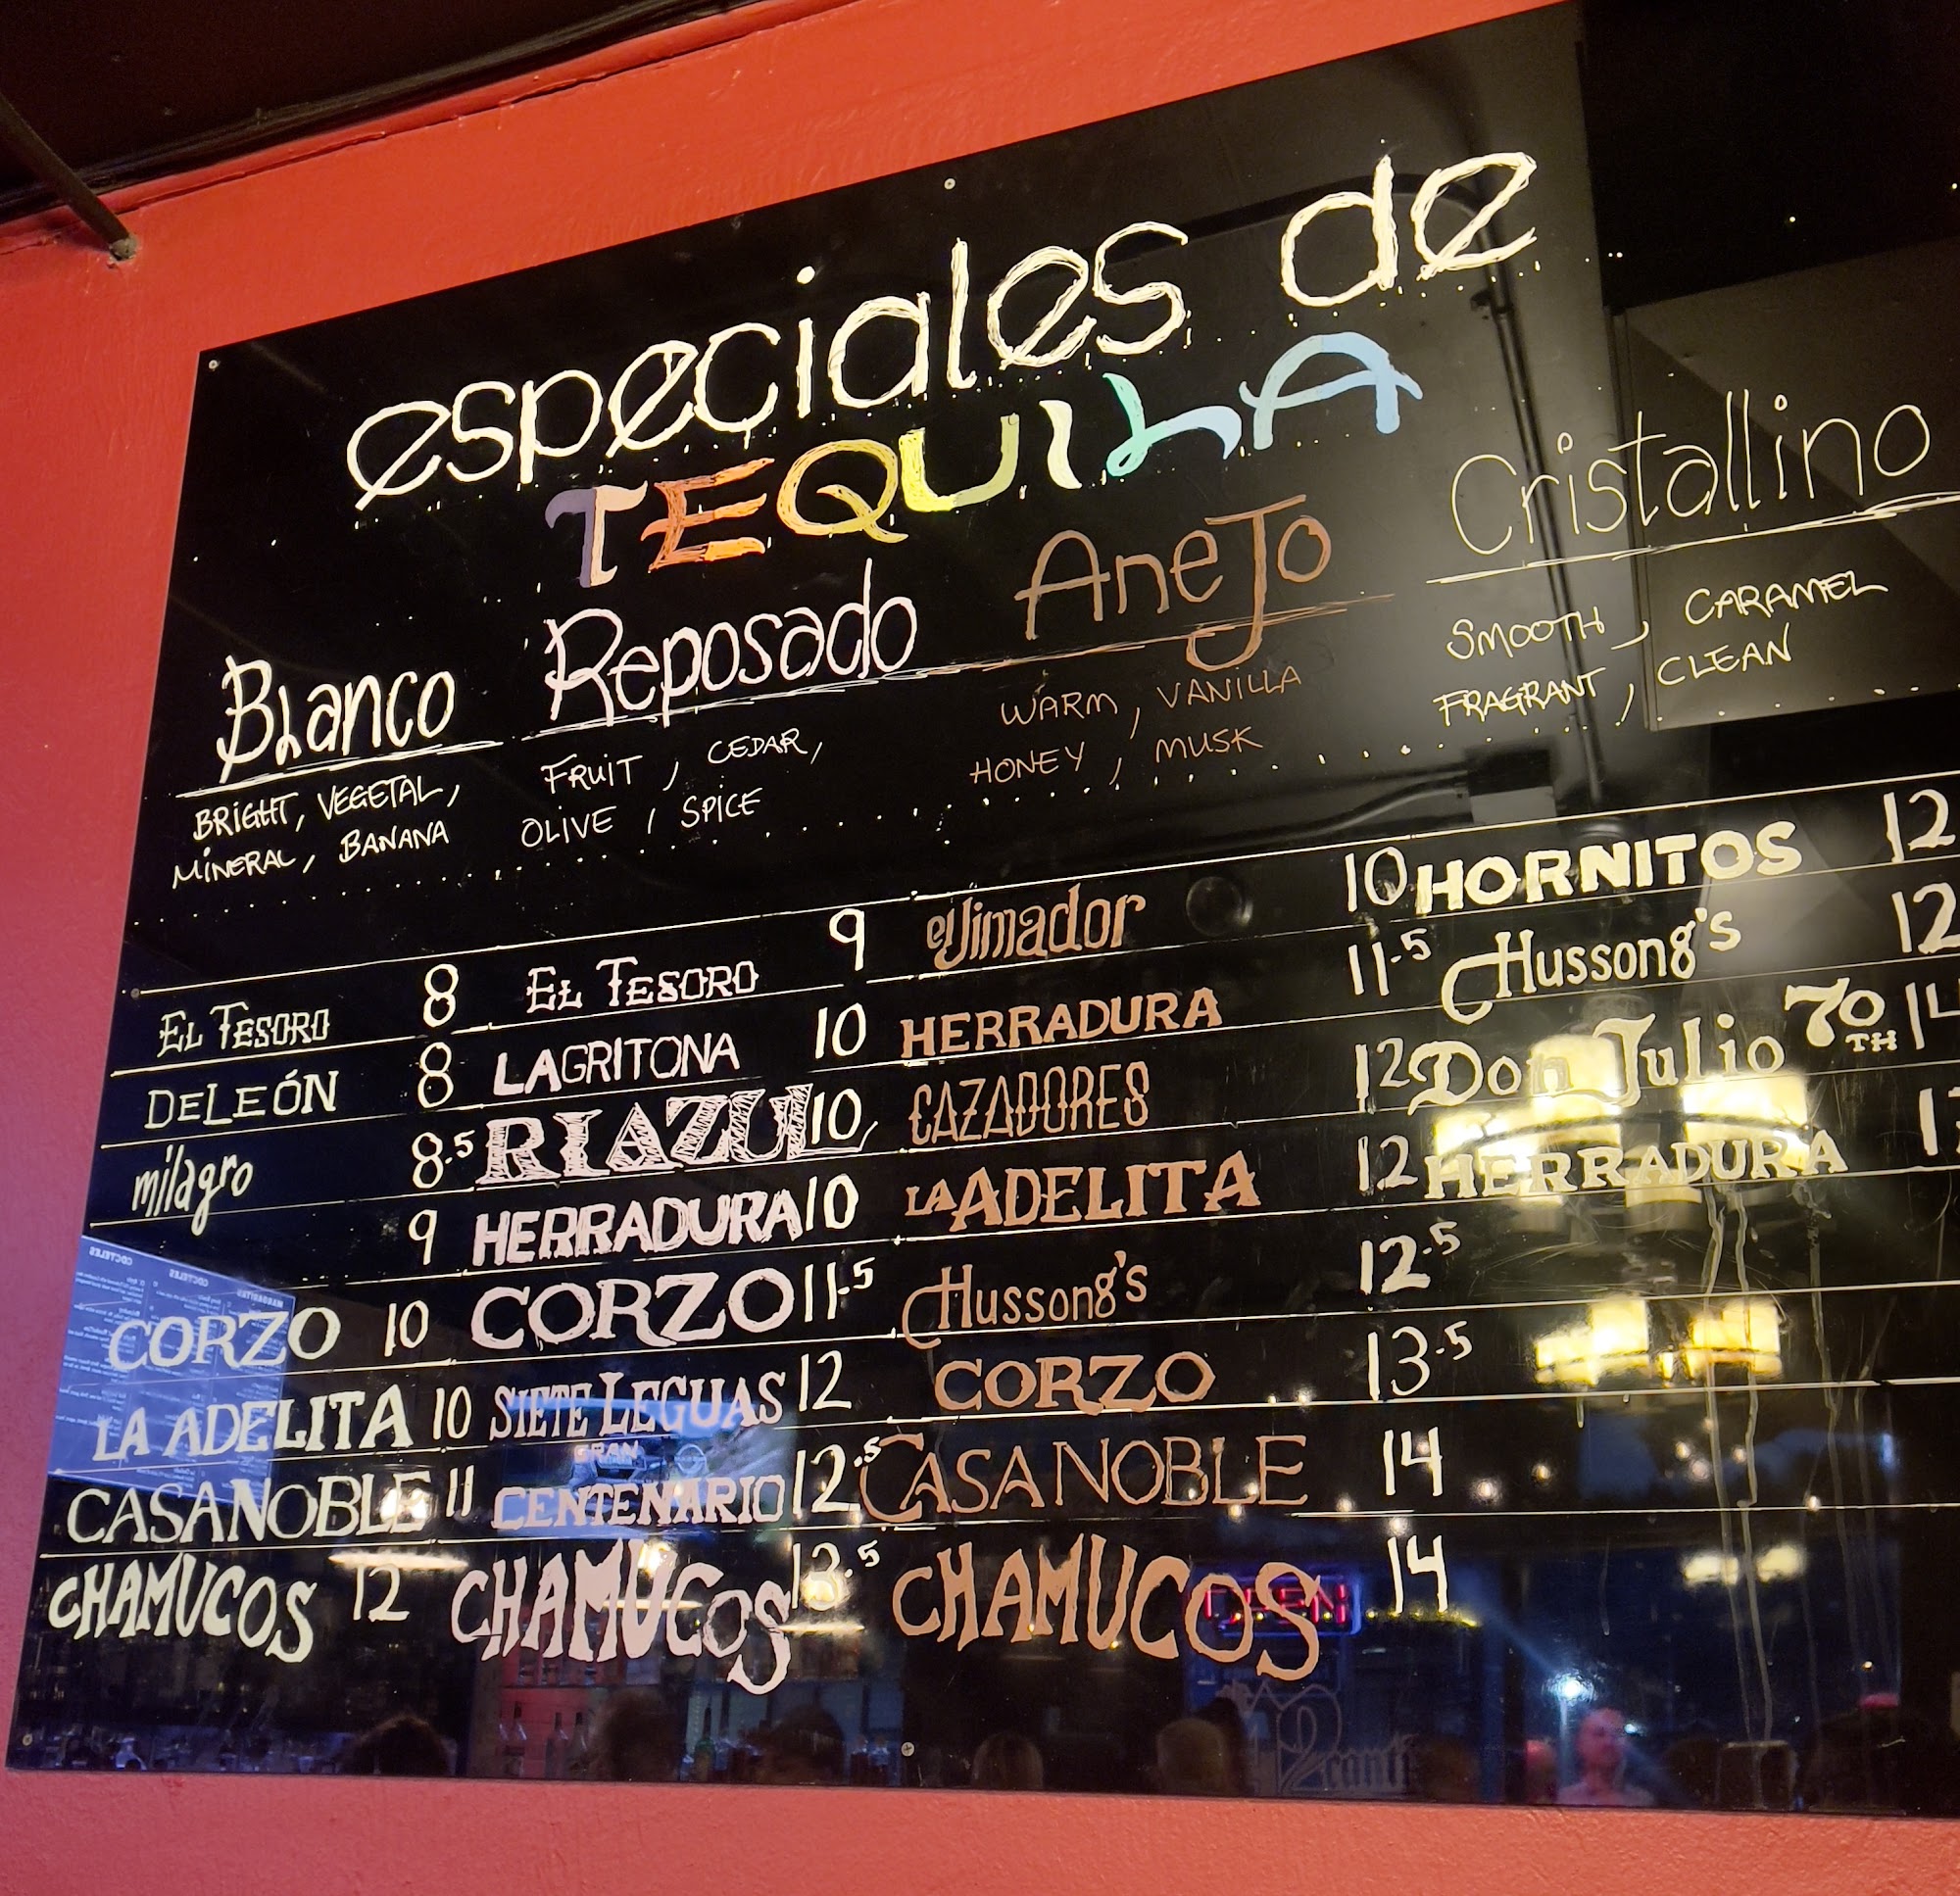 especiales de
TEQUILA
Blanco
BRIGHT, VEGETAL,
MINERAL, BANANA
EL TESORO 8
DELEÓN 8
milagro 8.5
9
CORZO 10
LA ADELITA 10
CASANOBLE 11
CHAMUCOS 12
Reposado
FRUIT, CEDAR,
OLIVE, SPICE
EL TESORO 9
LAGRITONA 10
RIAZUL 10
HERRADURA 10
CORZO 11.5
SIETE LEGUAS 12
GRAN
CENTENARIO 12.5
CHAMUCOS 13.5
Anejo
WARM, VANILLA
HONEY, MUSK
el Jimador 10
HERRADURA 11.5
CAZADORES 12
LA ADELITA 12
Hussong's 12.5
CORZO 13.5
CASA NOBLE 14
CHAMUCOS 14
Cristallino
SMOOTH, CARAMEL
FRAGRANT, CLEAN
HORNITOS 12
Hussong's 12
Don Julio 70TH 14
HERRADURA
OPEN